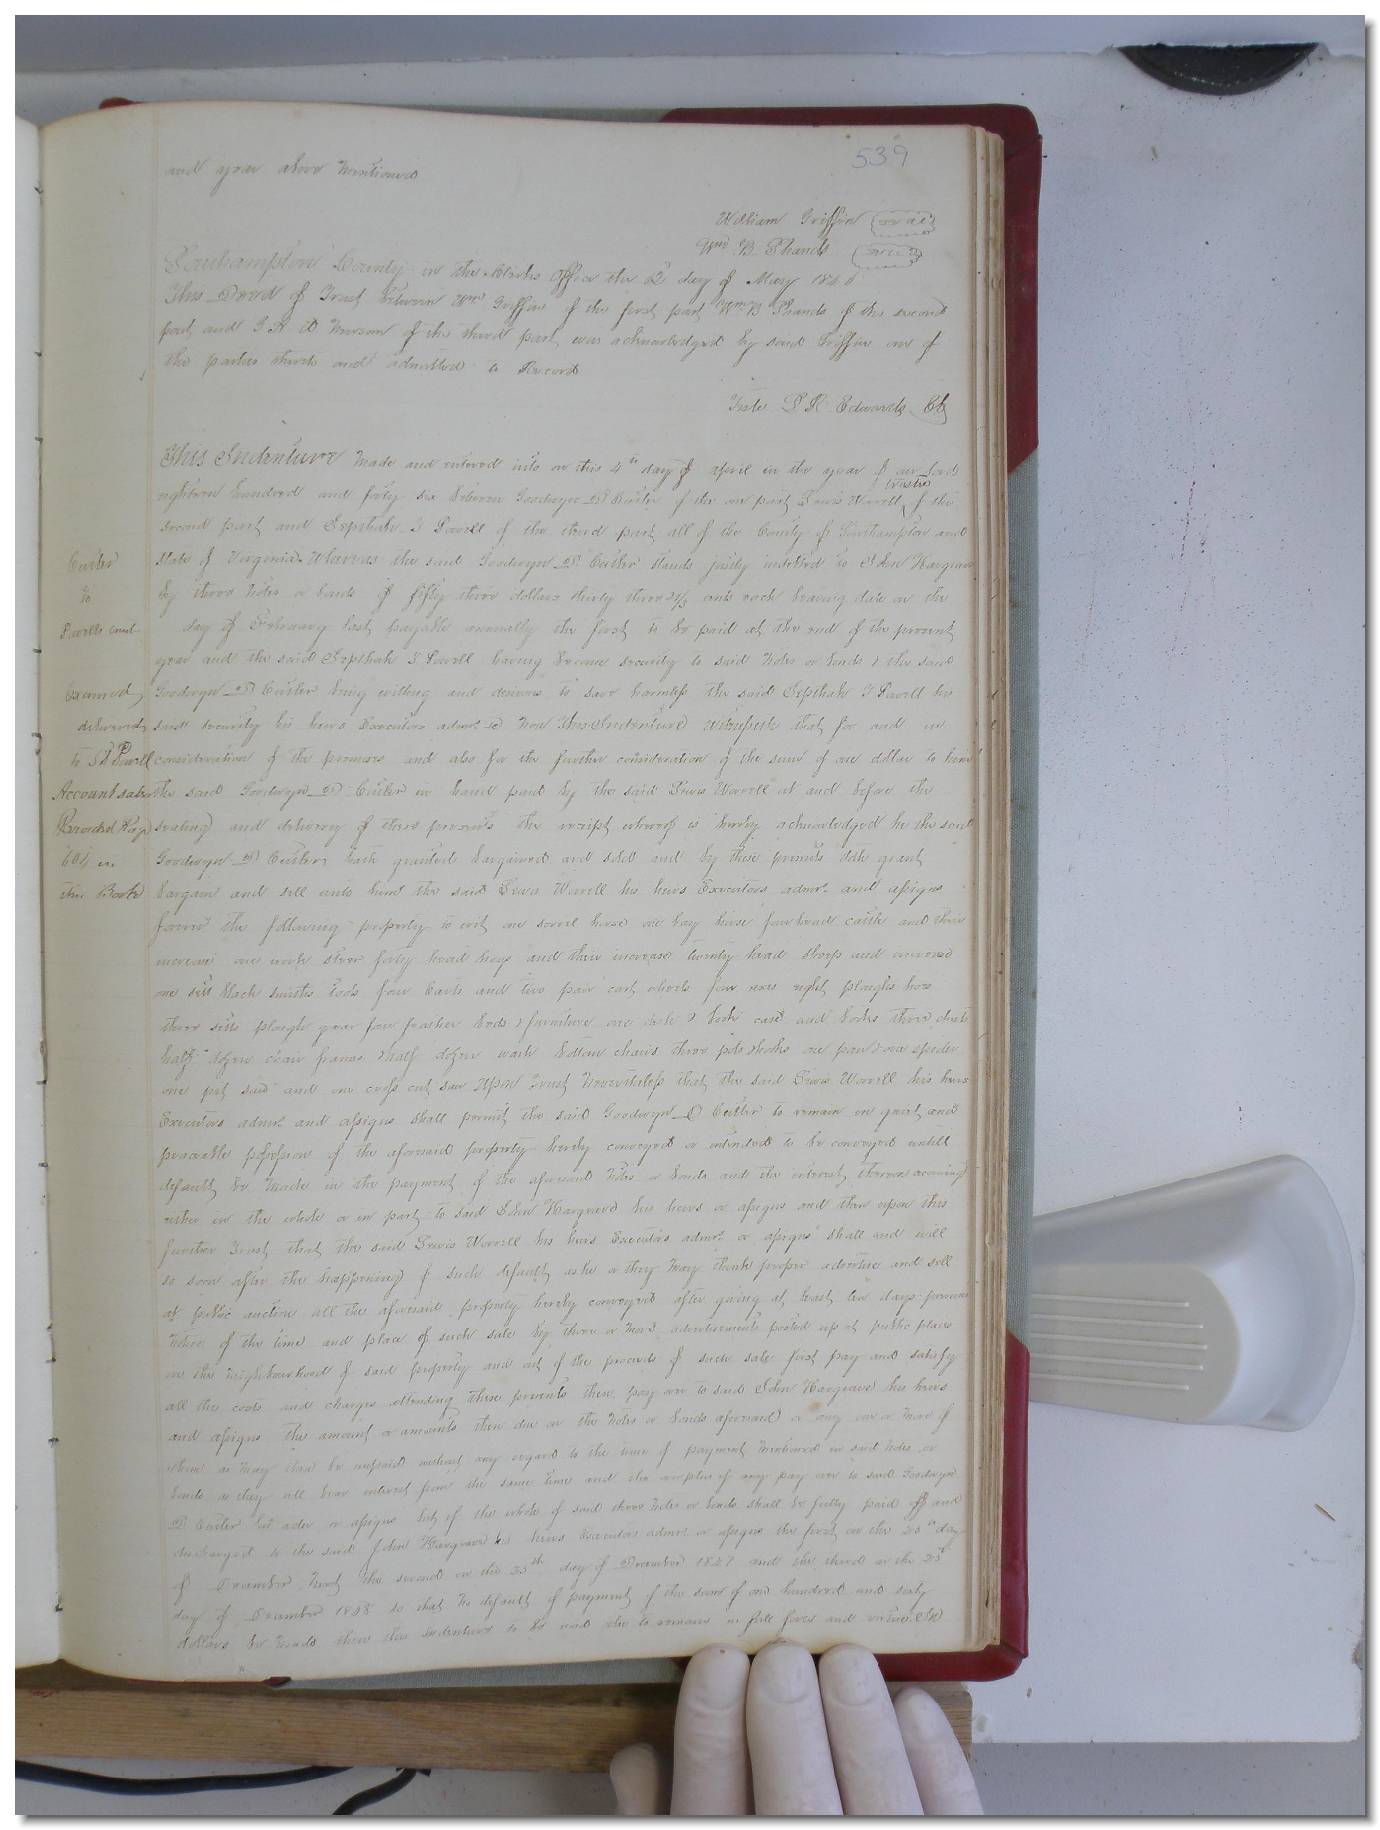 539
and year above mentioned
William Griffin seal
Wm B Shands seal
Southampton County in the Clerks Office the 12 day of May 1846
This Deed of Trust between Wm Griffin of the first part Wm B Shands of the second
part and of the third part was acknowledged by said Griffin one of
the parties thereto and admitted to Record
Teste L R Edwards Clk
This Indenture made and entered into on this 4th day of april in the year of our Lord
eighteen hundred and forty six between Goodwyn Cutler of the one part Lewis Worrell trustee of the
second part and Jepthah T Powell of the third part all of the County of Southampton and
Cutler
State of Virginia Whereas the said Goodwyn Cutler stands justly indebted to John Hargrave
to
by three notes or bonds of fifty three dollars thirty three 2/3 cents each bearing date on the
Powells trust
day of February last payable annually the first to be paid at the end of the present
year and the said Jepthah T Powell having become security to said notes or bonds & the said
Examined
Goodwyn Cutler being willing and desirous to save harmless the said Jepthah T Powell his
delivered
said security his heirs Executors admrs &c Now This Indenture Witnesseth that for and in
to Powell
consideration of the premises and also for the further consideration of the sum of one dollar to him
Account sales
the said Goodwyn Cutler in hand paid by the said Lewis Worrell at and before the
Recorded Page
sealing and delivery of these presents the receipt whereof is hereby acknowledged he the said
601 in
Goodwyn Cutler hath granted bargained and sold and by these presents doth grant
this Book
bargain and sell unto him the said Lewis Worrell his heirs Executors admrs and assigns
forever the following property to wit one sorrel horse one bay horse four head cattle and their
increase one work steer forty head hogs and their increase twenty head sheep and increase
one sett black smiths tools four Carts and two pair cart wheels four axes eight ploughs hoes
three setts plough gear four feather beds & furniture one desk & book case and books three
half dozen chair frames & half dozen bottom chairs three pots & hooks one pan & one spider
one pit saw and one cross cut saw Upon Trust Nevertheless that the said Lewis Worrell his heirs
Executors admrs and assigns shall permit the said Goodwyn Cutler to remain in quiet and
peaceable possession of the aforesaid property hereby conveyed or intended to be conveyed untill
default be made in the payment of the aforesaid notes or bonds and the interest thereon accruing
either in the whole or in part to said John Hargrave his heirs or assigns and then upon this
further Trust that the said Lewis Worrell his heirs Executors admrs or assigns shall and will
so soon after the happening of such default as he or they may think proper advertise and sell
at public auction all the aforesaid property hereby conveyed after giving at least ten days previous
notice of the time and place of such sale by three or more advertisements posted up at public places
in the neighbourhood of said property and out of the proceeds of such sale first pay and satisfy
all the costs and charges attending these presents then pay over to said John Hargrave his heirs
and assigns the amount or amounts then due on the notes or bonds aforesaid or any one or more of
them as may then be unpaid without any regard to the time of payment mentioned in said notes or
bonds as they all bear interest from the same time and the surplus if any pay over to said Goodwyn
Cutler his or assigns but if the whole of said three notes or bonds shall be fully paid off and
discharged to the said John Hargrave his heirs Executors admrs or assigns the first on the 25th day
of December Next the second on the 25th day of December 1847 and the third on the 25th
day of December 1848 so that no default of payment of the sum of one hundred and sixty
dollars be made then this Indenture to be void else to remain in full force and virtue